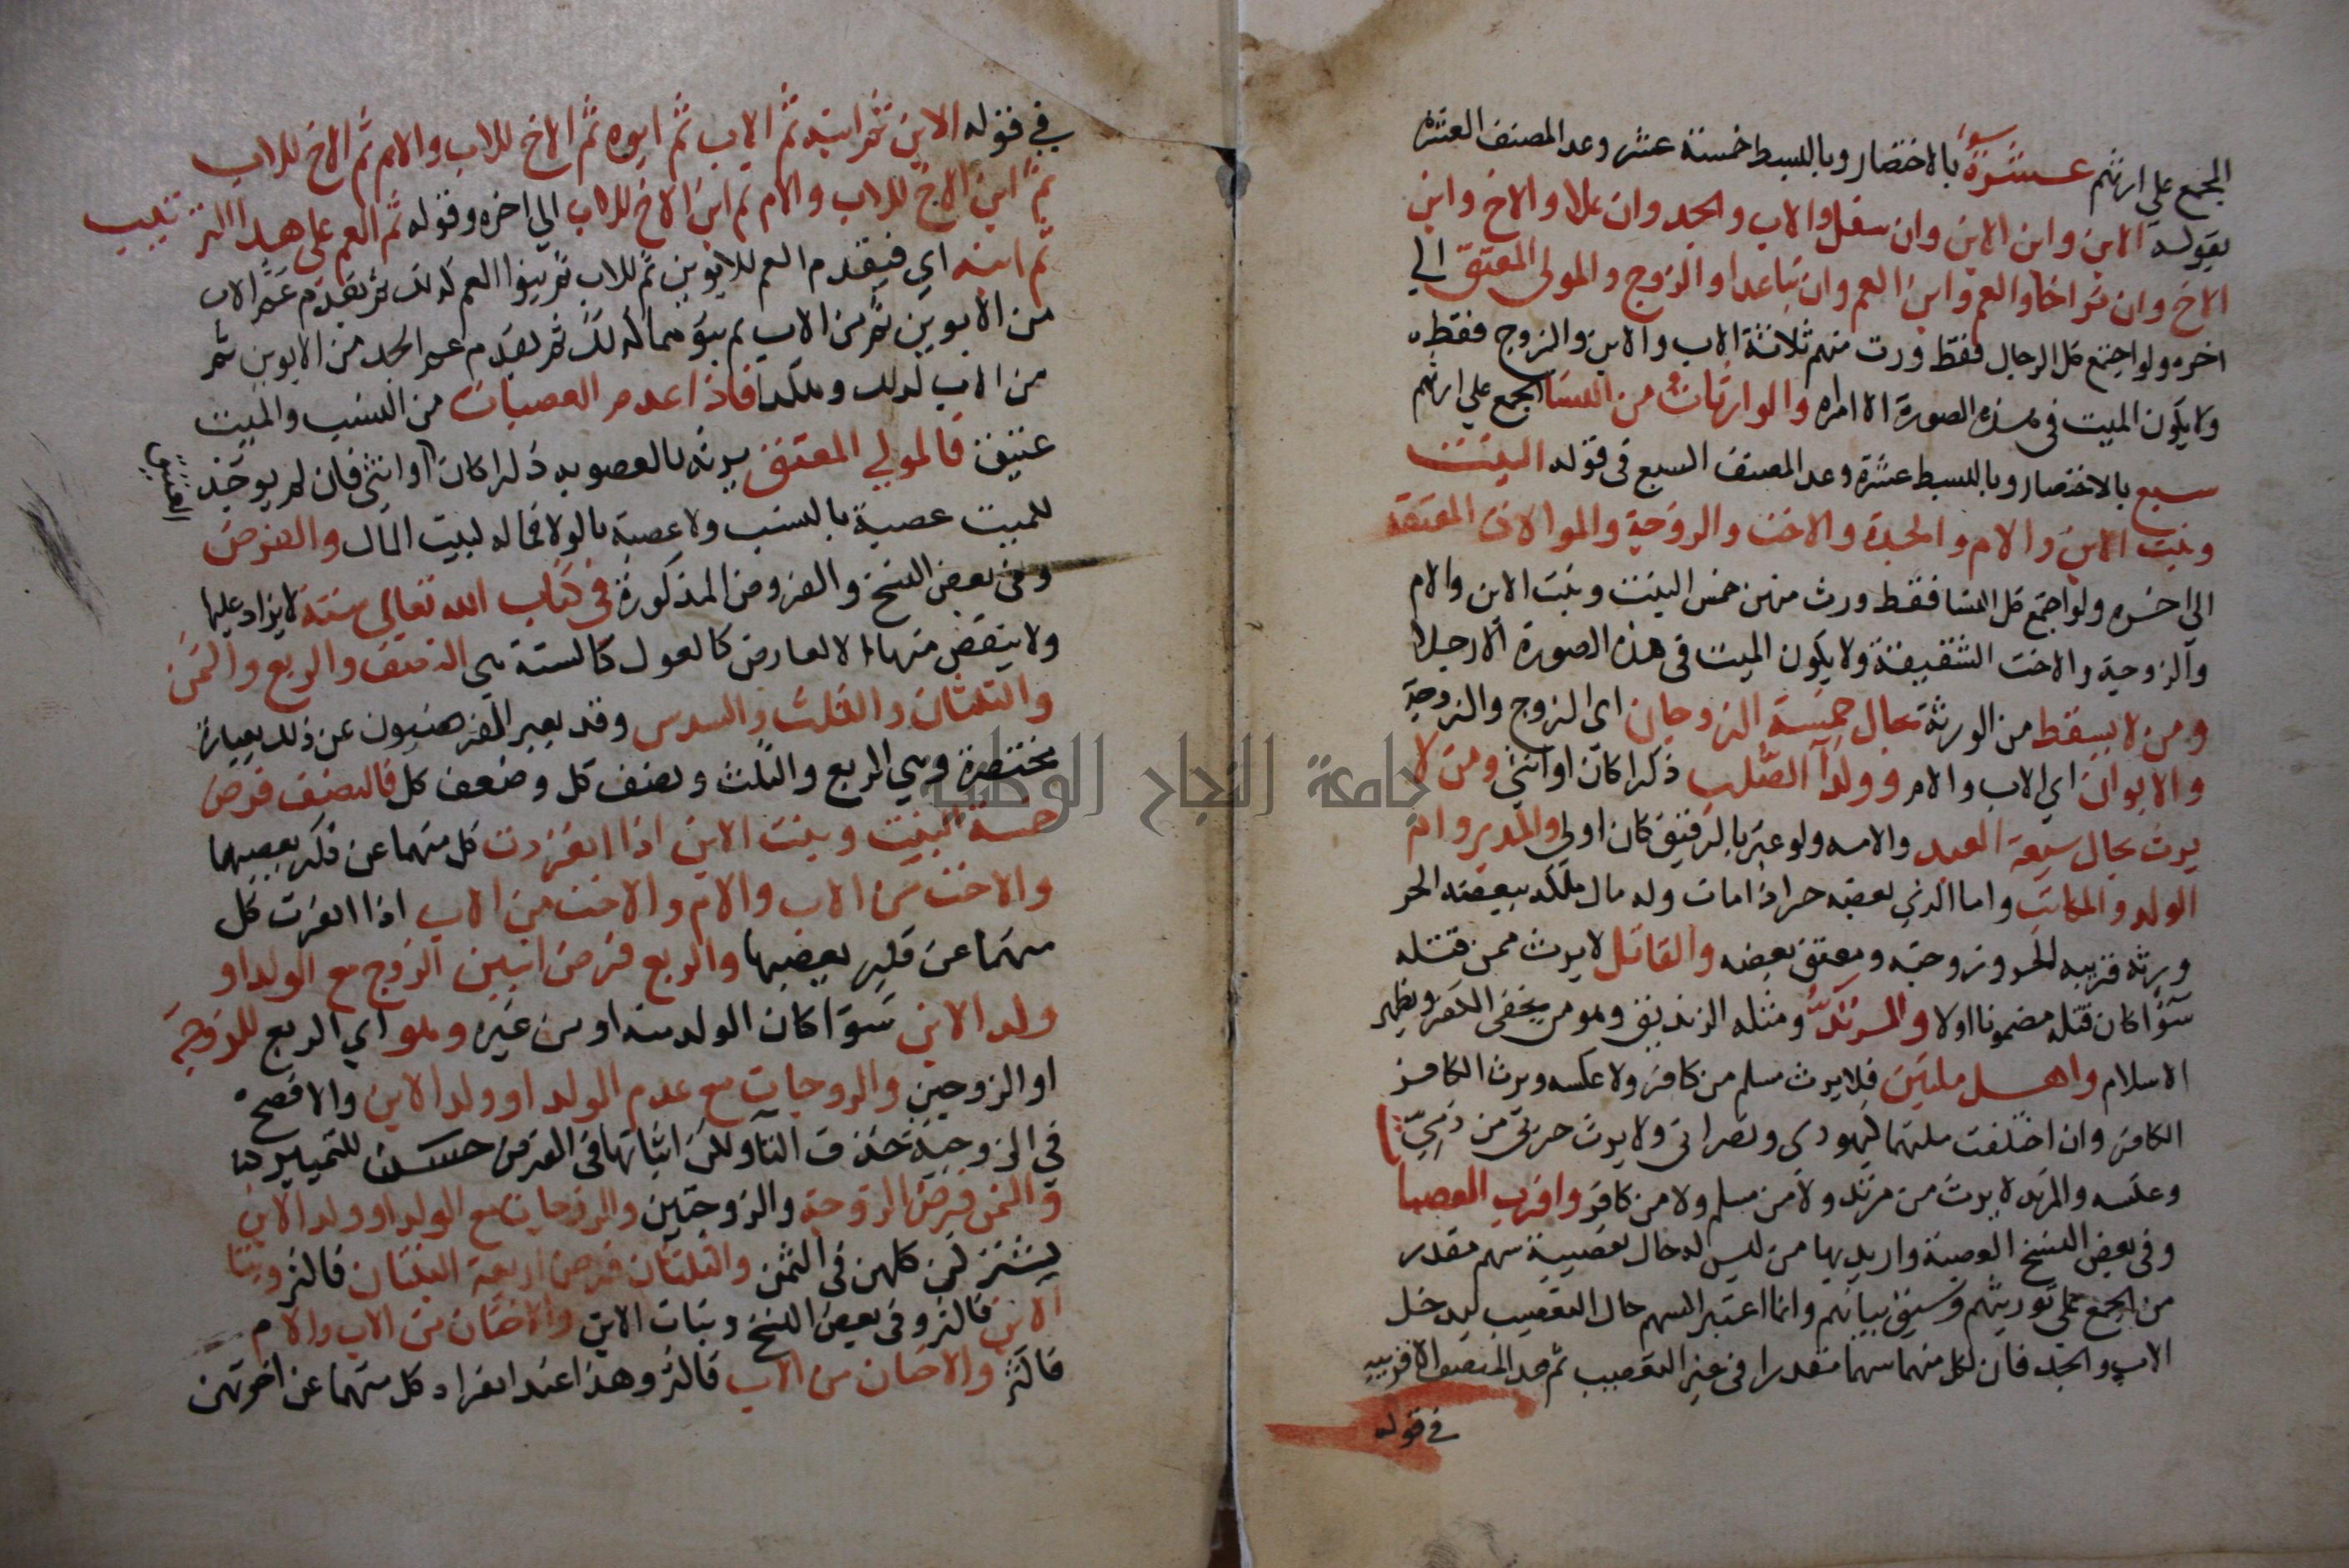 المجمع على ارثهم عشرة بالاختصار وبالبسط خمسة عشر وعد المصنف العشرة
بقوله الابن وابن الابن وان سفل والاب والجد وان علا والاخ وابن
الاخ وان تراخا والعم وابن العم وان تباعدا والزوج والمولى المعتق الي
اخره ولو اجتمع كل الرجال فقط ورث منهم ثلاثة الاب والابن والزوج فقط
ولا يكون الميت في هذه الصورة الا امراه والوارثات من النسا المجمع علي ارثهم
سبع بالاختصار وبالبسط عشرة وعد المصنف السبع في قوله البنت
وبنت الابن والام والجدة والاخت والزوجة والموالاة المعتقة
الى اخره ولو اجتمع كل النسا فقط ورث منهن خمس البنت وبنت الابن والام
والزوجة والاخت الشقيقة ولا يكون الميت في هذه الصورة الا رجلا
ومن لا يسقط من الورثة بحال خمسة الزوجان اى الزوج والزوجة
والابوان اي الاب والام وولدا الصلب ذكرا كان او انثي ومن لا
يرث بحال سبعة العبد والامه ولو عبر بالرقيق كان اولي والمدبر وام
الولد والمكاتب واما الذي بعضه حر اذا مات وله مال ملكه ببعضه الحر
ورثه قريبه الحر وزوجته ومعتق بعضه والقاتل لا يرث ممن قتله
سوا كان قتله مضمونا او لا والمرتد ومثله الزنديق وهو من يخفى الكفر ويظهر
الاسلام واهل ملتين فلا يرث مسلم من كافر ولا عكسه ويرث الكافر
الكافر وان اختلفت ملتهما كيهودى ونصراني ولا يرث حربي من ذمي
وعكسه والمرتد لا يرث من مرتد ولا من مسلم ولا من كافر واقرب العصبا
وفي بعض النسخ العصبة واريد بها من ليس له حال تعصيبه سهم مقدر
من المجمع على توريثهم وسبق بيانهم وانما اعتبر السهم حال التعصيب ليدخل
الاب والجد فان لكل منهما سهما مقدرا في غير التعصيب ثم عد المصنف الاقربيه
في قوله
في قوله الابن ثم ابنه ثم الاب ثم ابوه ثم الاخ للاب والام ثم الاخ للاب
ثم ابن الاخ للاب والام ثم ابن الاخ للاب الي اخره وقوله ثم العم على هذا الترتيب
ثم ابنه اي فيقدم العم للابوين ثم للاب ثم بنوا العم كذلك ثم يقدم عم الاب
من الابوين ثم من الاب ثم بنوهما كذلك ثم يقدم عم الجد من الابوين ثم
من الاب كذلك وهكذا فاذا عدم العصبات من النسب والميت
عتيق فالمولي المعتق يرثه بالعصوبه ذكرا كان او انثي فان لم يوجد
للميت عصبة بالنسب ولا عصبة بالولا فماله لبيت المال والفرض
وفي بعض النسخ والفروض المذكورة في كتاب الله تعالي ستة لا يزاد عليها
ولا ينقص منها الا لعارض كالعول كالستة هي النصف والربع والثمن
والثلثان والثلث والسدس وقد يعبر الفرضيون عن ذلك بعبارة
مختصرة وهي الربع والثلث ونصف كل وضعف كل فالنصف فرض
خمسة البنت وبنت الابن اذا انفردت كل منهما عن ذكر يعصبهما
والاخت من الاب والام والاخت من الاب اذا انفرت كل
منهما عن ذكر يعصبها والربع فرض اثنين الزوج مع الولد او
ولد الابن سوا كان الولد منه او من غيره وهو اي الربع للزوجة
او الزوجين والزوجات مع عدم الولد او ولد الابن والافصح
في الزوجة حذف التا ولكن اثباتها في الفرض حسن للتمييز
والثمن فرض الزوجة والزوجتين والزوجات مع الولد او ولد الابن
يشتركن كلهن في الثمن والثلثان فرض اربعة البنتان فاكثر وبنتا
الابن فاكثر وفي بعض النسخ وبنات الابن والاختان من الاب والام
فاكثر والاختان من الاب فاكثر وهذا عند انفراد كل منهما عن اخوتهن
جامعة النجاح الوطنية